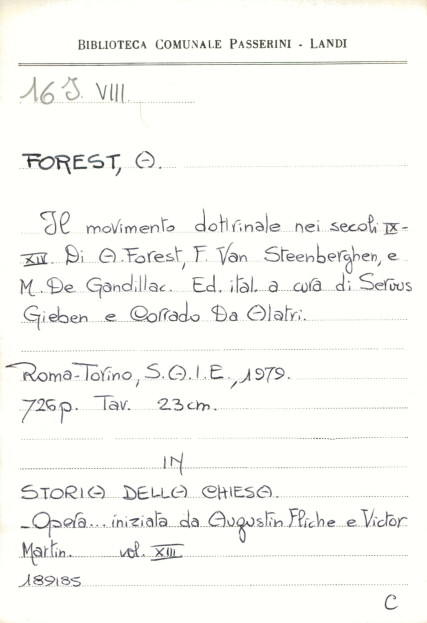 BIBLIOTECA COMUNALE PASSERINI - LANDI
16 J. VIII.
FOREST, A.
Il movimento dottrinale nei secoli IX-
XIV. Di A. Forest, F. Van Steenberghen, e
M. De Gandillac. Ed. ital. a cura di Servus
Gieben e Corrado Da Alatri.
Roma-Torino, S.A.I.E., 1979.
726 p. Tav. 23 cm.
IN
STORIA DELLA CHIESA.
-Opera... iniziata da Augustin Fliche e Victor
Martin. vol. XIII
189185
C